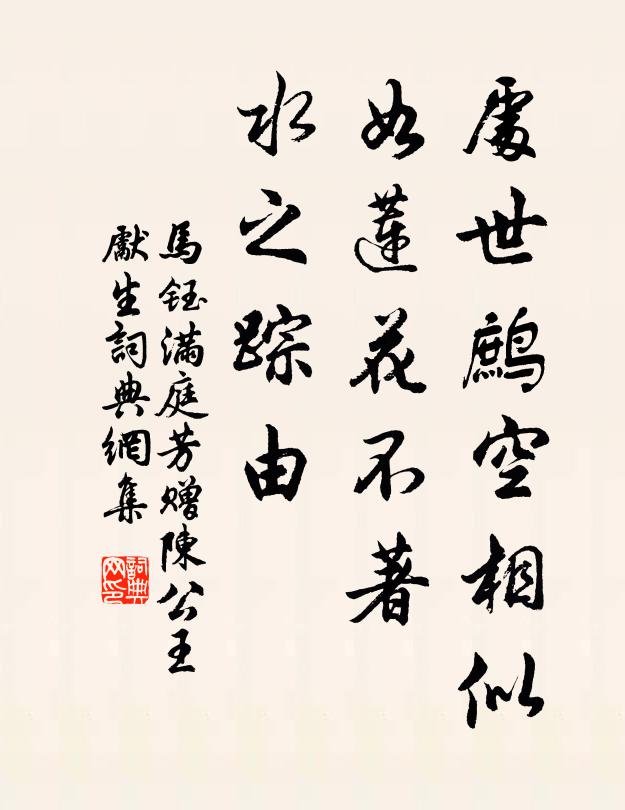 處世鷓空相似
如蓮花不著
水之踪由
馬鈺满庭芳赠陳公王
獻生詞典網集
詞典网印